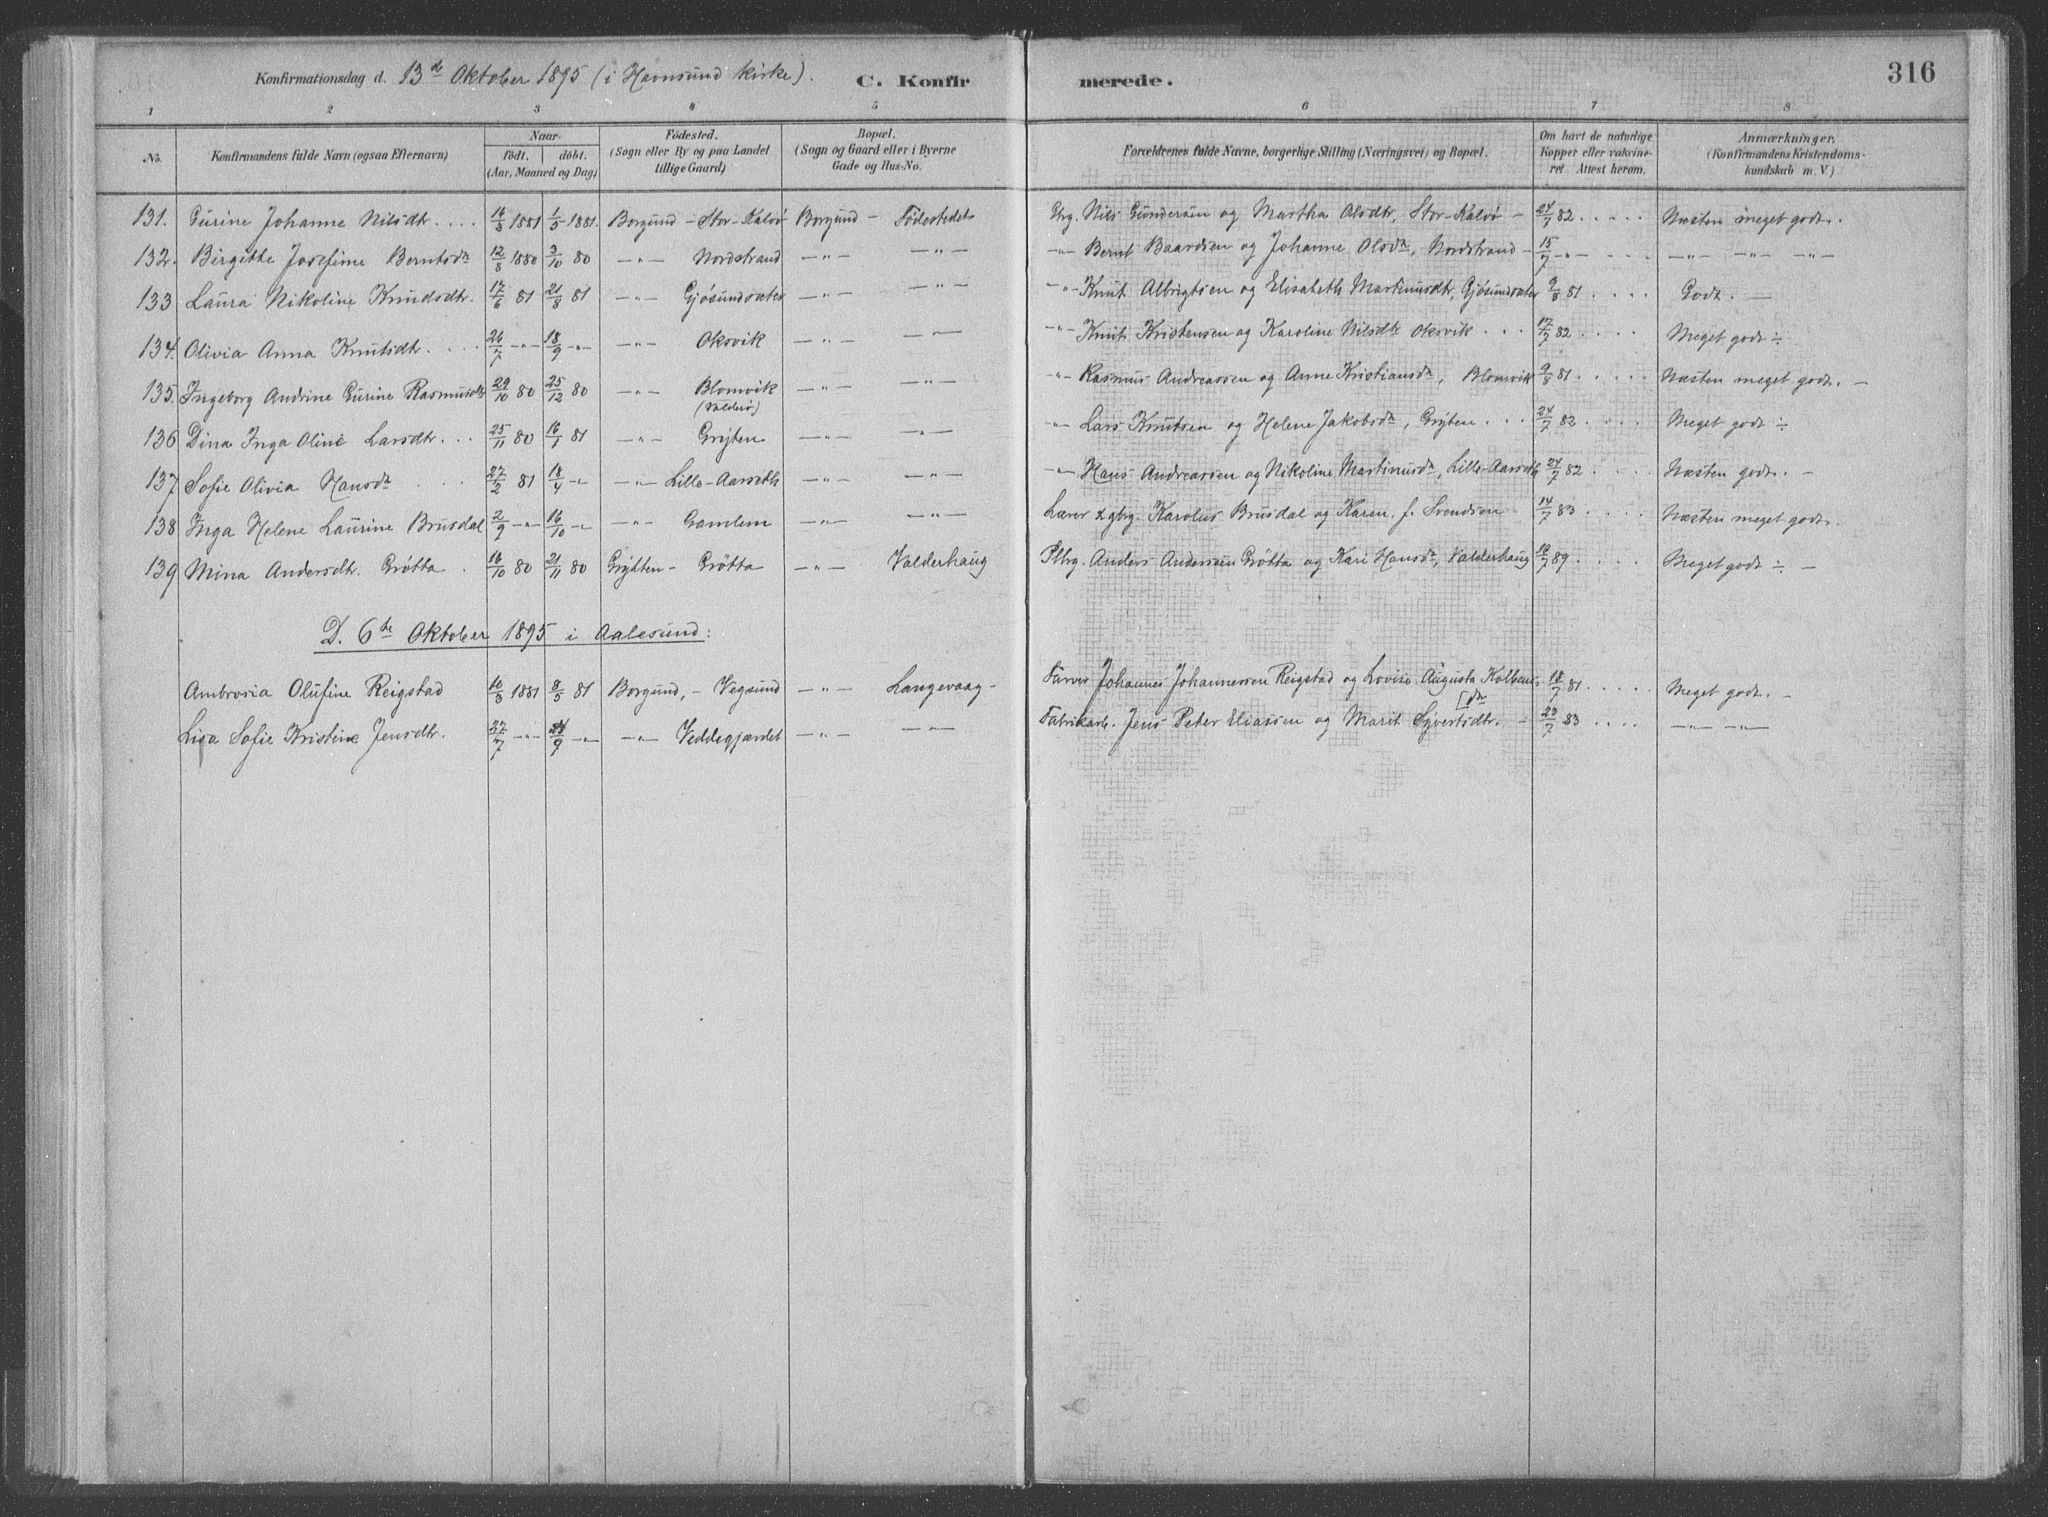 Konfirmationsdag d. 13de Oktober 1895 (i Havnsund kirke). C. Konfirmerede. 316
1 2 3 4 5 6 7 8
No. Konfirmandens fulde Navn (ogsaa Efternavn) Naar födt. döbt. (Aar, Maaned og Dag) Födested. (Sogn eller By og paa Landet tillige Gaard) Bopæl. (Sogn og Gaard eller i Byerne Gade og Hus-No. Forældrenes fulde Navne, borgerlige Stilling (Næringsvei) og Bopæl. Om havt de naturlige Kopper eller vakcineret. Attest herom. Anmærkninger. (Konfirmandens Kristendomskundskab m. V.)
131. Gurine Johanne Nilsdtr. 16/3 1881 1/5 1881. Borgund - Stor-Kalvø Borgund - Födestedet Gbrg. Nils Gundersen og Martha Olsdtr, Stor-Kalvø - 24/7 82 Næsten meget godt.
132. Birgitte Josefine Berntsdr 12/8 1880 3/10 80 -„- Nordstrand -„- -„- -„- Bernt Baardsen og Johanne Olsdr, Nordstrand - 15/7 -„- -„- -„- -„-
133 Laura Nikoline Knudsdtr. 17/6 81 21/8 81 -„- Gjøsundsæter -„- -„- -„- Knut Albrigtsen og Elisabeth Markusdtr, Gjøsundsæter 9/8 81 Godt. -
134. Olivia Anna Knutsdtr. 26/7 -„- 18/9 -„- -„- Oksvik -„- -„- -„- Knut Kristensen og Karoline Nilsdtr Oksvik 17/7 82 Meget godt ÷
135. Ingeborg Andrine Gurine Rasmusdtr 29/10 80 25/12 80 -„- Blomvik (Valderö) -„- -„- -„- Rasmus Andreassen og Anne Kristiansdr, Blomvik 9/8 81 Næsten meget godt. -
136 Dina Inga Oline Larsdtr. 25/11 80 16/1 81 -„- Gryten -„- -„- -„- Lars Knutsen og Helene Jakobsdr, Gryten 24/7 82 Meget godt ÷
137 Sofie Olivia Hansdr 27/2 81 18/4 -„- -„- Lille-Aarseth -„- -„- -„- Hans Andreassen og Nikoline Martinusdr, Lille-Aarseth 24/7 82 Næsten godt. -
138 Inga Helene Laurine Brusdal 2/9 -„- 16/10 -„- -„- Gamlem -„- -„- Lærer & gbrg. Karolus Brusdal og Karen f. Svendsen 14/7 83 Næsten meget godt.
139 Mina Andersdtr. Grøtta 16/10 80 21/11 80 Grytten - Grøtta -„- Valderhaug Pltrg. Anders Andersen Grøtta og Kari Hansdr, Valderhaug 10/7 89 Meget godt ÷ -
D. 6te Oktober 1895 i Aalesund:
Ambrosia Olufine Reigstad 10/3 1881 8/5 81 Borgund, - Vegsund -„- Langevaag - Farver Johannes Johannessen Reigstad og Lovise Augusta Kolbensdr 18/7 81 Meget godt. -
Sofie Kristine Jensdtr. 27/7 -„- /9 -„- -„- Veddegjærdet -„- -„- Fabrikarb. Jens Peter Eliassen og Marit Syvertsdtr. - 23/7 83 -„- -„-